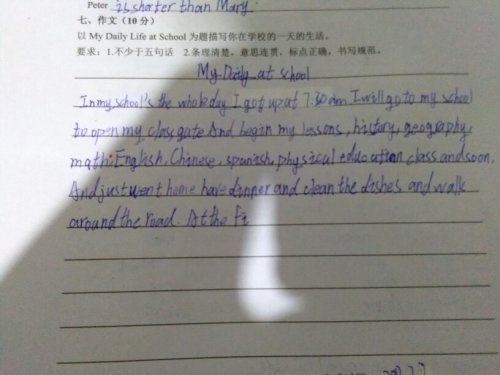 Peter is shorter than Mary.
七、作文(10 分)
以 My Daily Life at School 为题描写你在学校的一天的生活。
要求：1.不少于五句话 2.条理清楚，意思连贯，标点正确，书写规范。
My Daily at school
In my school's the whole day I got up at 7:30 am. I will go to my school
to open my class gate And begin my lessons, history, geography,
math. English, Chinese, spanish, physical education class and soon,
And just went home have dinner and clean the dishes and walk
around the road. At the Fi